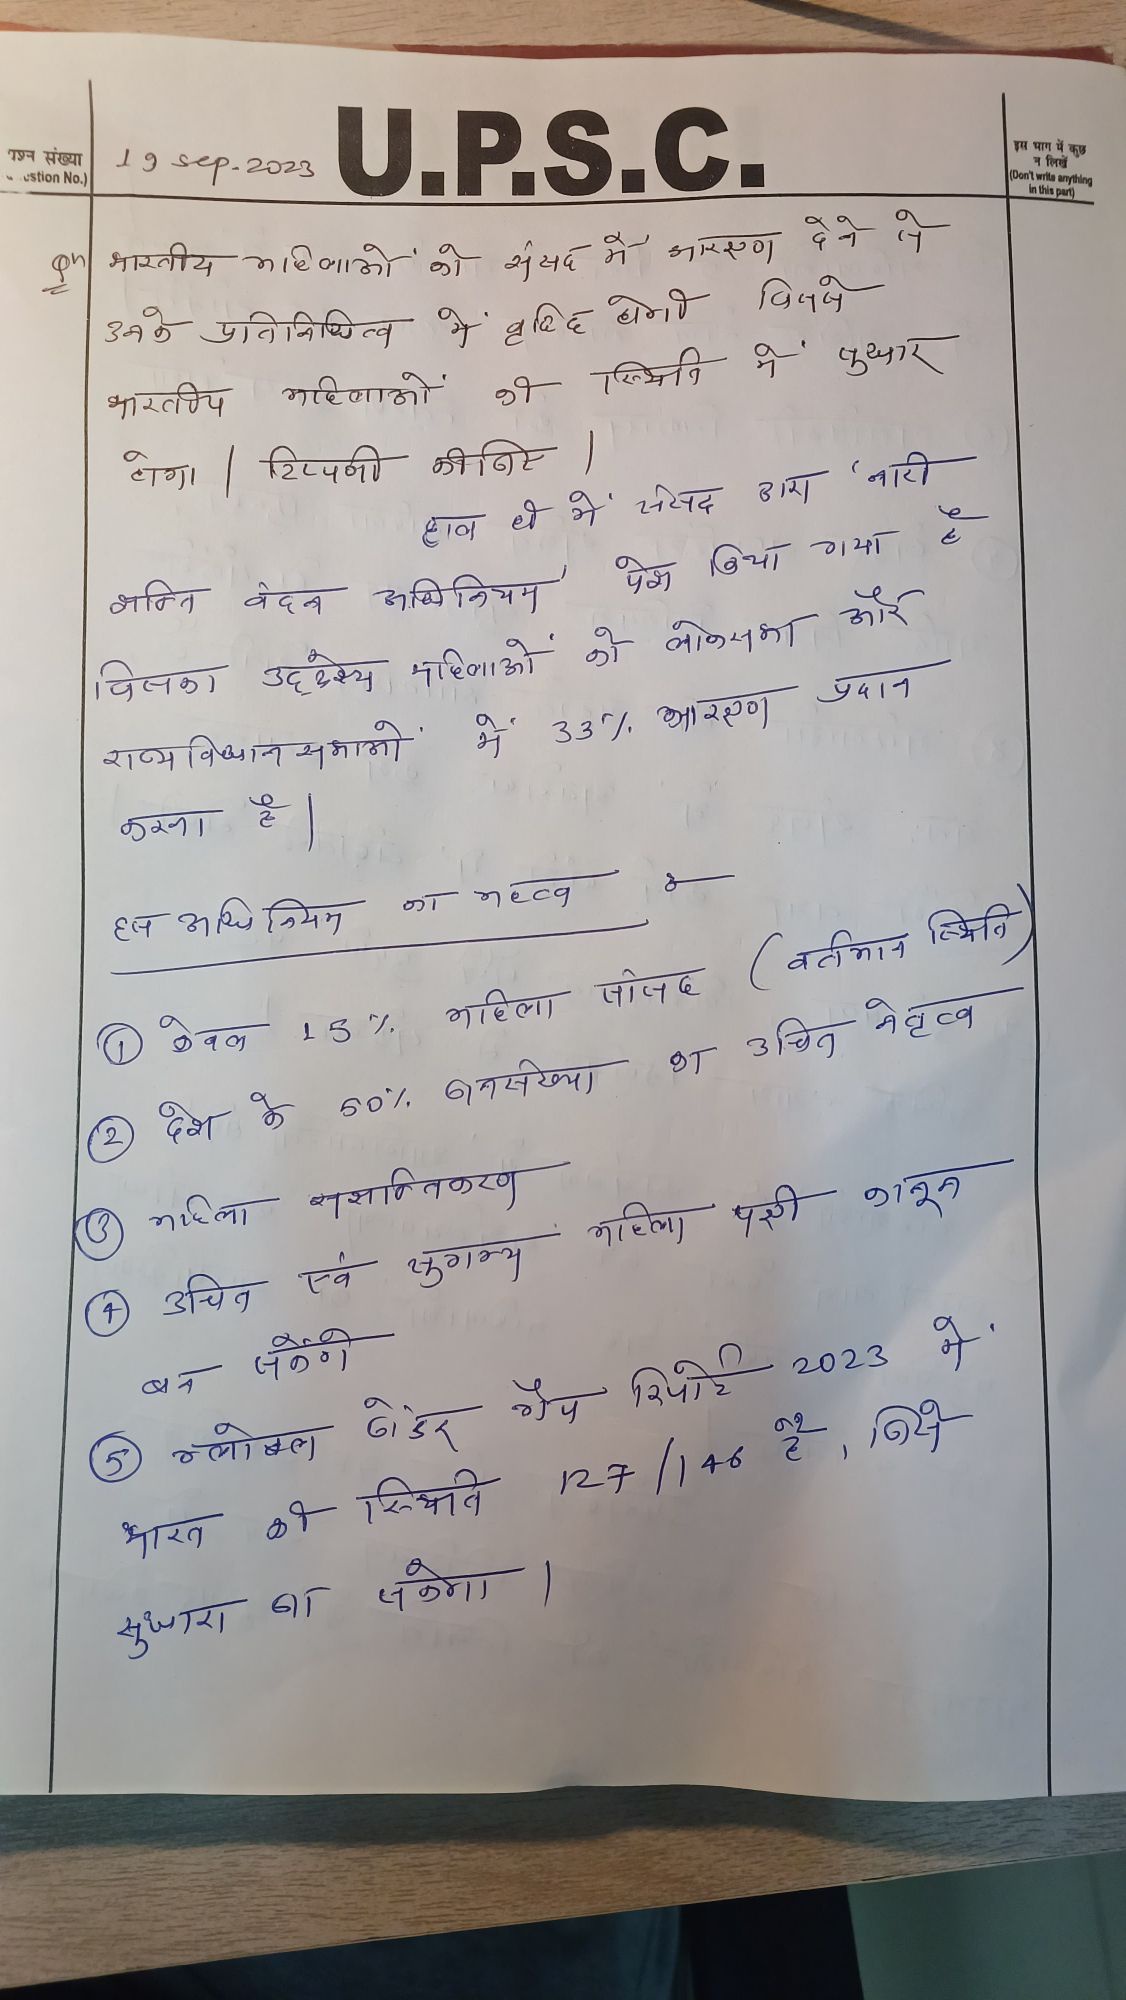 U.P.S.C.
प्रश्न संख्या
stion No.)
19 sep. 2023
इस भाग में कुछ
न लिखें
(Don't write anything
in this part)
Qn भारतीय महिलाओं को संसद में आरक्षण देने से
उनके प्रतिनिधित्व में वृद्धि होगी जिससे
भारतीय महिलाओं की स्थिति में सुधार
होगा | टिप्पणी कीजिए |
हाल ही में संसद द्वारा 'नारी
शक्ति वंदन अधिनियम' पेश किया गया है
जिसका उद्देश्य महिलाओं को लोकसभा और
राज्य विधानसभाओं में 33% आरक्षण प्रदान
करना है |
इस अधिनियम का महत्व :-
① केवल 15% महिला सांसद (वर्तमान स्थिति)
② देश के 50% जनसंख्या का उचित नेतृत्व
③ महिला सशक्तिकरण
④ उचित एवं सुगम्य महिला पक्षी कानून
बन सकेंगे
⑤ ग्लोबल जेंडर गैप रिपोर्ट 2023 में
भारत की स्थिति 127/146 है, जिसे
सुधारा जा सकेगा |